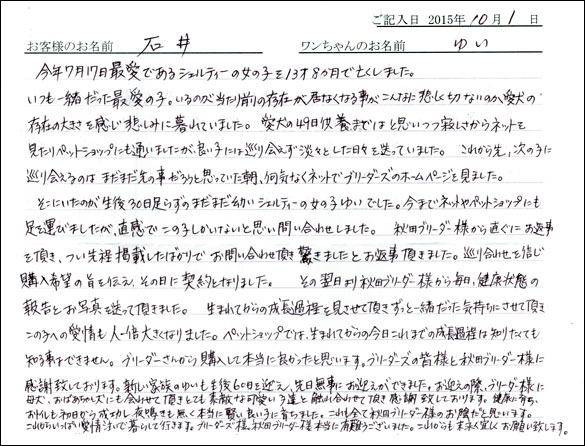 ご記入日 2015年 10月 1日
お客様のお名前 石井 ワンちゃんのお名前 ゆい
今年7月17日最愛であるシェルティーの女の子を13才8か月で亡くしました。
いつも一緒だった最愛の子。いるのが当たり前の存在が居なくなる事がこんなに悲しく切ないのか、愛犬の
存在の大きさを感じ悲しみに暮れていました。愛犬の49日供養まではと思いつつ寂しさからネットを
見たりペットショップにも通いましたが、良い子には巡り会えず淡々とした日々を送っていました。 これから先、次の子に
巡り会えるのはまだまだ先の事だろうと思っていた朝、何気なくネットでブリーダーズのホームページを見ました。
そこにいたのが生後30日足らずのまだまだ幼いシェルティーの女の子ゆいでした。今までネットやペットショップにも
足を運びましたが、直感でこの子しかいないと思い問い合わせしました。 秋田ブリーダー様から直ぐにお返事
を頂き、つい先程掲載したばかりでお問い合わせ頂き驚きましたとお返事頂きました。巡り合わせを信じ
購入希望の旨を伝え、その日に契約となりました。 その翌日より秋田ブリーダー様から毎日、健康状態の
報告とお写真を送って頂きました。 生まれてからの成長過程を見させて頂きずっと一緒だった気持ちにさせて頂き
この子への愛情も人一倍大きくなりました。ペットショップでは、生まれてからの今日これまでの成長過程は知りたくても
知る事ができません。ブリーダーさんから購入して本当に良かったと思います。ブリーダーズの皆様と秋田ブリーダー様に
感謝致しております。新しい家族のゆいも生後60日を迎え、先日無事にお迎えができました。お迎えの際、ブリーダー様に
母犬、おばあちゃん犬にも会わせて頂きとても素敵な可愛い子達と触れ合わせて頂き感謝致しております。健康に育ち、
おトイレも初日から成功し、夜鳴きも無く本当に賢い良い子に育ちました。これも全て秋田ブリーダー様のお陰だと思います。
これからいっぱい愛情注いで暮らして行きます。ブリーダーズ様、秋田ブリーダー様本当に有難うございました。これからも末永く宜しくお願い致します。